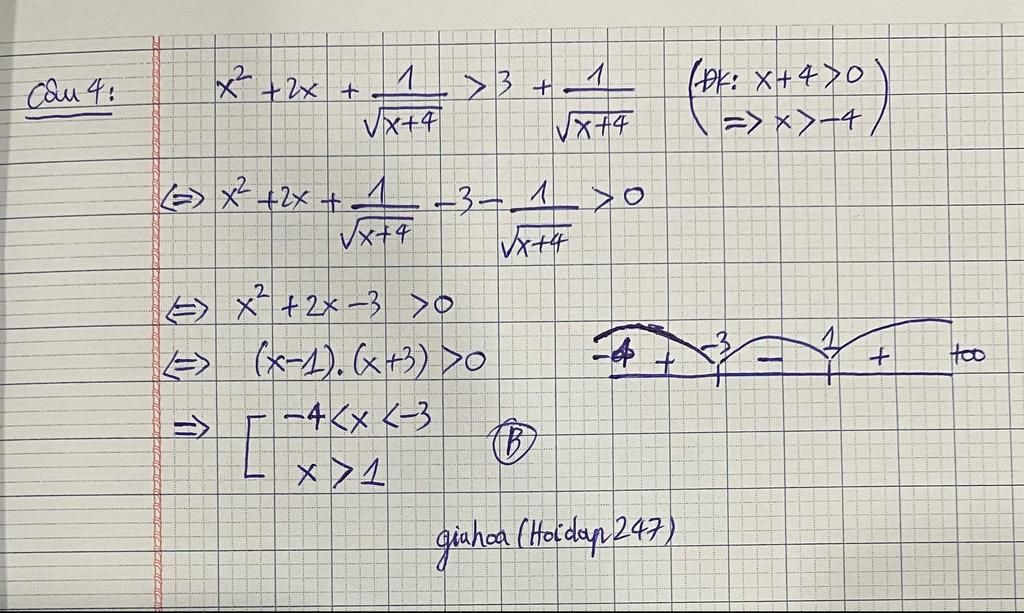 Câu 4: x² + 2x + 1/√(x+4) > 3 + 1/√(x+4) (ĐK: x+4 > 0
=> x > -4)
<=> x² + 2x + 1/√(x+4) - 3 - 1/√(x+4) > 0
<=> x² + 2x - 3 > 0
<=> (x-1).(x+3) > 0
-4 + -3 - 1 + +∞
=> [ -4 < x < -3
x > 1
B
giahoa (Hoidap247)